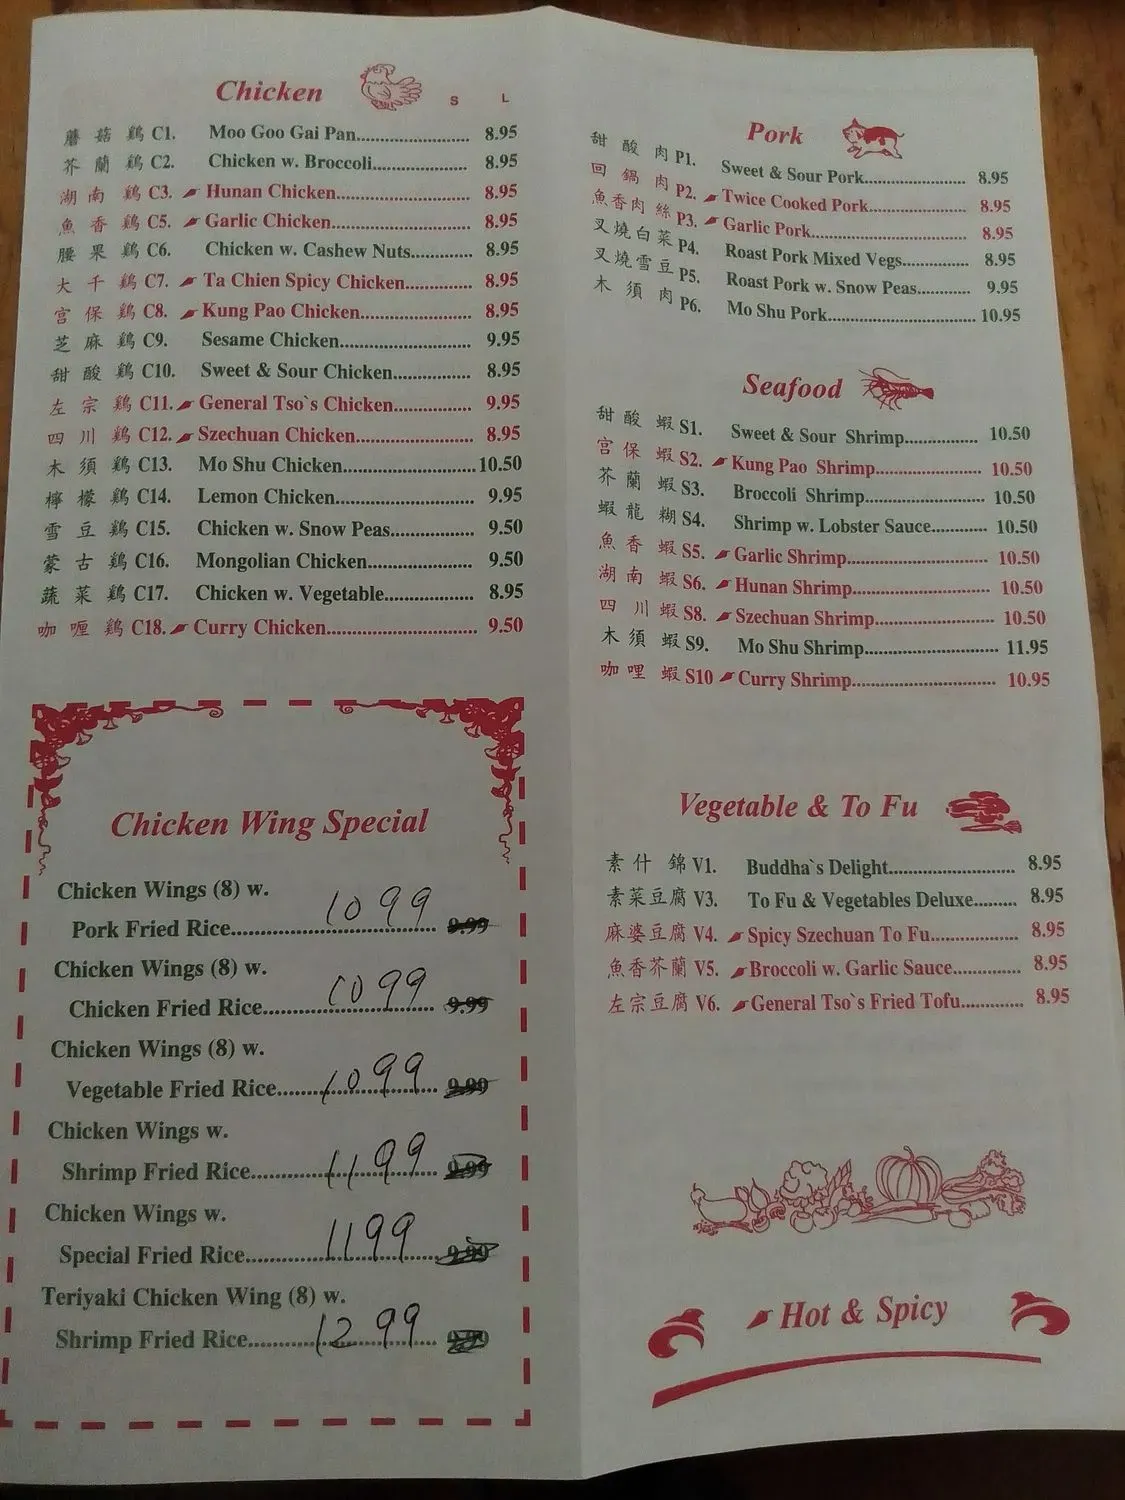 Chicken
S L
蘑菇鷄 C1. Moo Goo Gai Pan 8.95
芥蘭鷄 C2. Chicken w. Broccoli 8.95
湖南鷄 C3. Hunan Chicken 8.95
魚香鷄 C5. Garlic Chicken 8.95
腰果鷄 C6. Chicken w. Cashew Nuts 8.95
大千鷄 C7. Ta Chien Spicy Chicken 8.95
宫保鷄 C8. Kung Pao Chicken 8.95
芝麻鷄 C9. Sesame Chicken 9.95
甜酸鷄 C10. Sweet & Sour Chicken 8.95
左宗鷄 C11. General Tso`s Chicken 9.95
四川鷄 C12. Szechuan Chicken 8.95
木須鷄 C13. Mo Shu Chicken 10.50
檸檬鷄 C14. Lemon Chicken 9.95
雪豆鷄 C15. Chicken w. Snow Peas 9.50
蒙古鷄 C16. Mongolian Chicken 9.50
蔬菜鷄 C17. Chicken w. Vegetable 8.95
咖喱鷄 C18. Curry Chicken 9.50
Chicken Wing Special
Chicken Wings (8) w.
Pork Fried Rice 1099 9.99
Chicken Wings (8) w.
Chicken Fried Rice 1099 9.99
Chicken Wings (8) w.
Vegetable Fried Rice 1099 9.99
Chicken Wings w.
Shrimp Fried Rice 1199 9.99
Chicken Wings w.
Special Fried Rice 1199 9.99
Teriyaki Chicken Wing (8) w.
Shrimp Fried Rice 1299
Pork
甜酸肉 P1. Sweet & Sour Pork 8.95
回鍋肉 P2. Twice Cooked Pork 8.95
魚香肉絲 P3. Garlic Pork 8.95
叉燒白菜 P4. Roast Pork Mixed Vegs 8.95
叉燒雪豆 P5. Roast Pork w. Snow Peas 9.95
木須肉 P6. Mo Shu Pork 10.95
Seafood
甜酸蝦 S1. Sweet & Sour Shrimp 10.50
宫保蝦 S2. Kung Pao Shrimp 10.50
芥蘭蝦 S3. Broccoli Shrimp 10.50
蝦龍糊 S4. Shrimp w. Lobster Sauce 10.50
魚香蝦 S5. Garlic Shrimp 10.50
湖南蝦 S6. Hunan Shrimp 10.50
四川蝦 S8. Szechuan Shrimp 10.50
木須蝦 S9. Mo Shu Shrimp 11.95
咖哩蝦 S10 Curry Shrimp 10.95
Vegetable & To Fu
素什錦 V1. Buddha`s Delight 8.95
素菜豆腐 V3. To Fu & Vegetables Deluxe 8.95
麻婆豆腐 V4. Spicy Szechuan To Fu 8.95
魚香芥蘭 V5. Broccoli w. Garlic Sauce 8.95
左宗豆腐 V6. General Tso`s Fried Tofu 8.95
Hot & Spicy